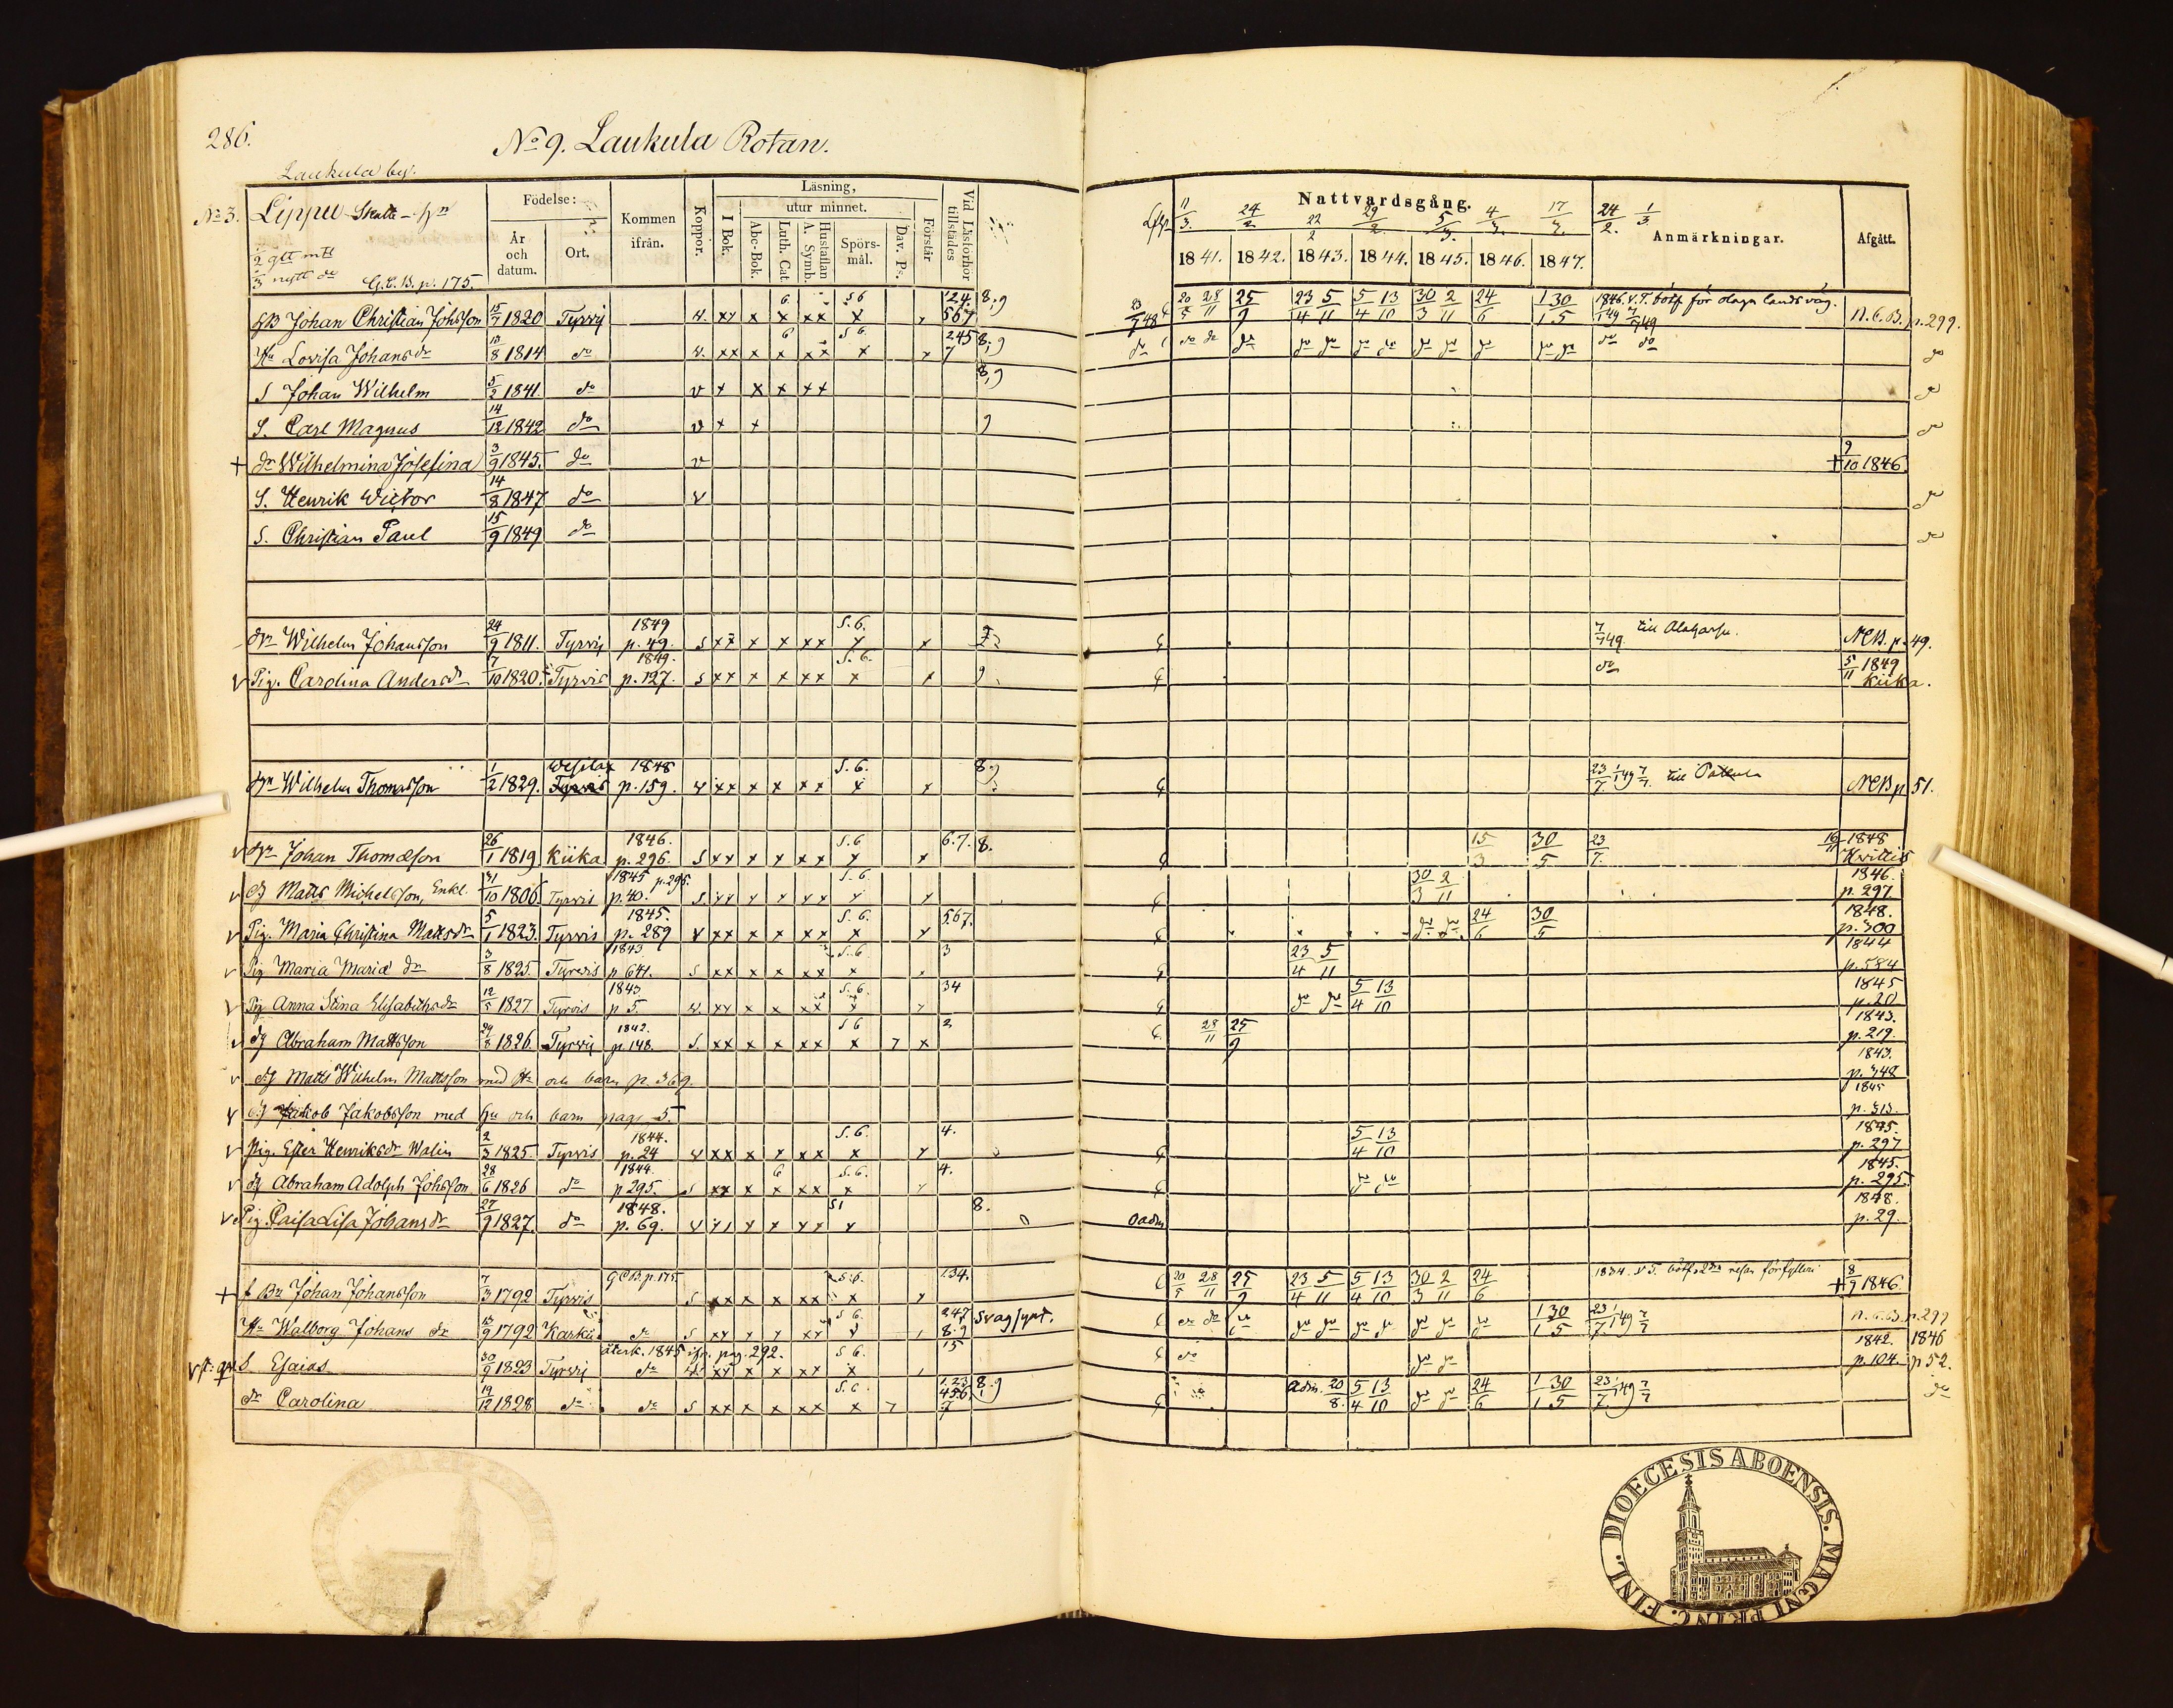 286.
No 9. Laukula Rotan.
Laukula by.
No 3. Lippu Skatte-hn
1/2 glt mtl
1/3 nytt do G.C.B. p. 175.
Födelse: År och datum. Ort. Kommen ifrån. Koppor. Läsning, I Bok. utur minnet. Abc-Bok. Luth. Cat. Hustaflan A. Symb. Spörsmål. Dav. Ps. Förstår Vid Läsförhör tillstädes
Nattvardsgång. Anmärkningar. Afgått.
11/3. 24/2 22/2 29/2 5/3 4/3. 17/3. 24/2. 1/3
1841. 1842. 1843. 1844. 1845. 1846. 1847.
HB Johan Christian Johsson 15/7 1820 Tyrvis v. xx x x xx x x 124. 567 8,9 20/5 28/11 25/9 23/4 5/11 5/4 13/10 30/3 2/11 24/6 1/1 30/5 1846. V.T. bötf för olaga landsväg. N.C.B. p. 299.
Hu Lovisa Johansdr 13/8 1814 do v. xx x x xx x x 245 7 8,9 do do do do do do do do do do do do do do do
S Johan Wilhelm 5/2 1841. do v x x x xx 8,9 do
S. Carl Magnus 14/12 1842 do v x x 9 do
+ dr Wilhelmina Josefina 3/9 1845. do v + 9/10 1846.
S. Henrik Victor 14/8 1847 do v do
S. Christian Paul 15/9 1849 do do
Wilhelm Johansson 24/9 1811. Tyrvis 1849 p. 49. s xx x x xx S.6. x x 7/7 49 till N.C.B. p. 49.
v Pig. Carolina Andersdr 7/10 1820. Tyrvis 1849. p. 127. s xx x x xx S.6. x x 9 do 5/11 1849 Kiika.
Wilhelm Thomasson 1/2 1829. 1848 p. 159. v xx x x xx S.6. x x 8.9 till N.C.B. p 51.
v Johan Thomasson 26/1 1819 Kiika 1846. p. 296. s xx x x xx S.6 x x 6.7. 8. 15/3 30/5 23/7. 16/11 1848 Hvittis
v dg Matts Michelsson, Enkl. 31/10 1806 Tyrvis 1845 p. 40. p. 296. s xx x x xx S.6. x x 30/3 2/11 1846. p. 297.
v Pig. Maria Christina Mattsdr 5/1 1823. Tyrvis 1845. p. 289 v xx x x xx S.6. x x 567. do do 24/6 30/5 1848. p. 300
v Pig Maria Mariæ dr 3/8 1825. Tyrvis 1843 p 641. s xx x x xx S.6 x x 3 23/4 5/11 1844 p. 584
v Pig Anna Stina Elisabethsdr 12/5 1827. Tyrvis 1843 p 5. v. xx x x xx S.6. x x 34 do do 5/4 13/10 1845 p. 20
v dg Abraham Mattsson 29/8 1826. Tyrvis 1842. p. 148. s. xx x x xx S 6 x 7 x 2 28/11 25/9 1843. p. 219.
v dg Matts Wilhelm Mattsson med Hu och barn p. 369. 1843. p. 348
v dg Jakob Jakobsson med hu och barn pag. 5. 1845 p. 313.
v Pig. Ester Henriksdr Walin 2/3 1825 Tyrvis 1844. p. 24 v xx x x xx S.6. x x 4. 5/4 13/10 1845. p. 297
v dg Abraham Adolph Johsson 28/6 1826 do 1844. p 295. s xx x x xx S.6. x x 4. do do 1845. p. 295.
v Pig Caisa Lisa Johansdr 27/9 1827. do 1848. p. 69. v xx x x xx S1 x 8. oadm 1848. p. 29.
+ f Bn Johan Johansson 7/3 1792 Tyrvis G.C.B. p. 175. s xx x x xx S.6. x x 134. 20/5 28/11 25/9 23/4 5/11 5/4 13/10 30/3 2/11 24/6 1834. V.T. bötf. 2dra resan för fylleri + 8/9 1846.
Hu Walborg Johans dr 13/9 1792 Karku do s xx x x xx S 6. x 247 8.9 Svagsynt. do do do do do do do do do do 1/1 30/5 N.C.B. p. 299
S. Esaias 30/9 1823 Tyrvis do återk. 1845 ifr. pag. 292. v. xx x x xx S 6. x 15 do do do 1842. p. 104. 1846 p 52.
dr Carolina 19/12 1828 do do s xx x x xx S.6. x 7 1.23 456. 7 8,9 adm. 20/8. 5/4 13/10 do do 24/6 1/1 30/5 do
DIOECESIS ABOENSIS. MAGNI PRINC. FINL.